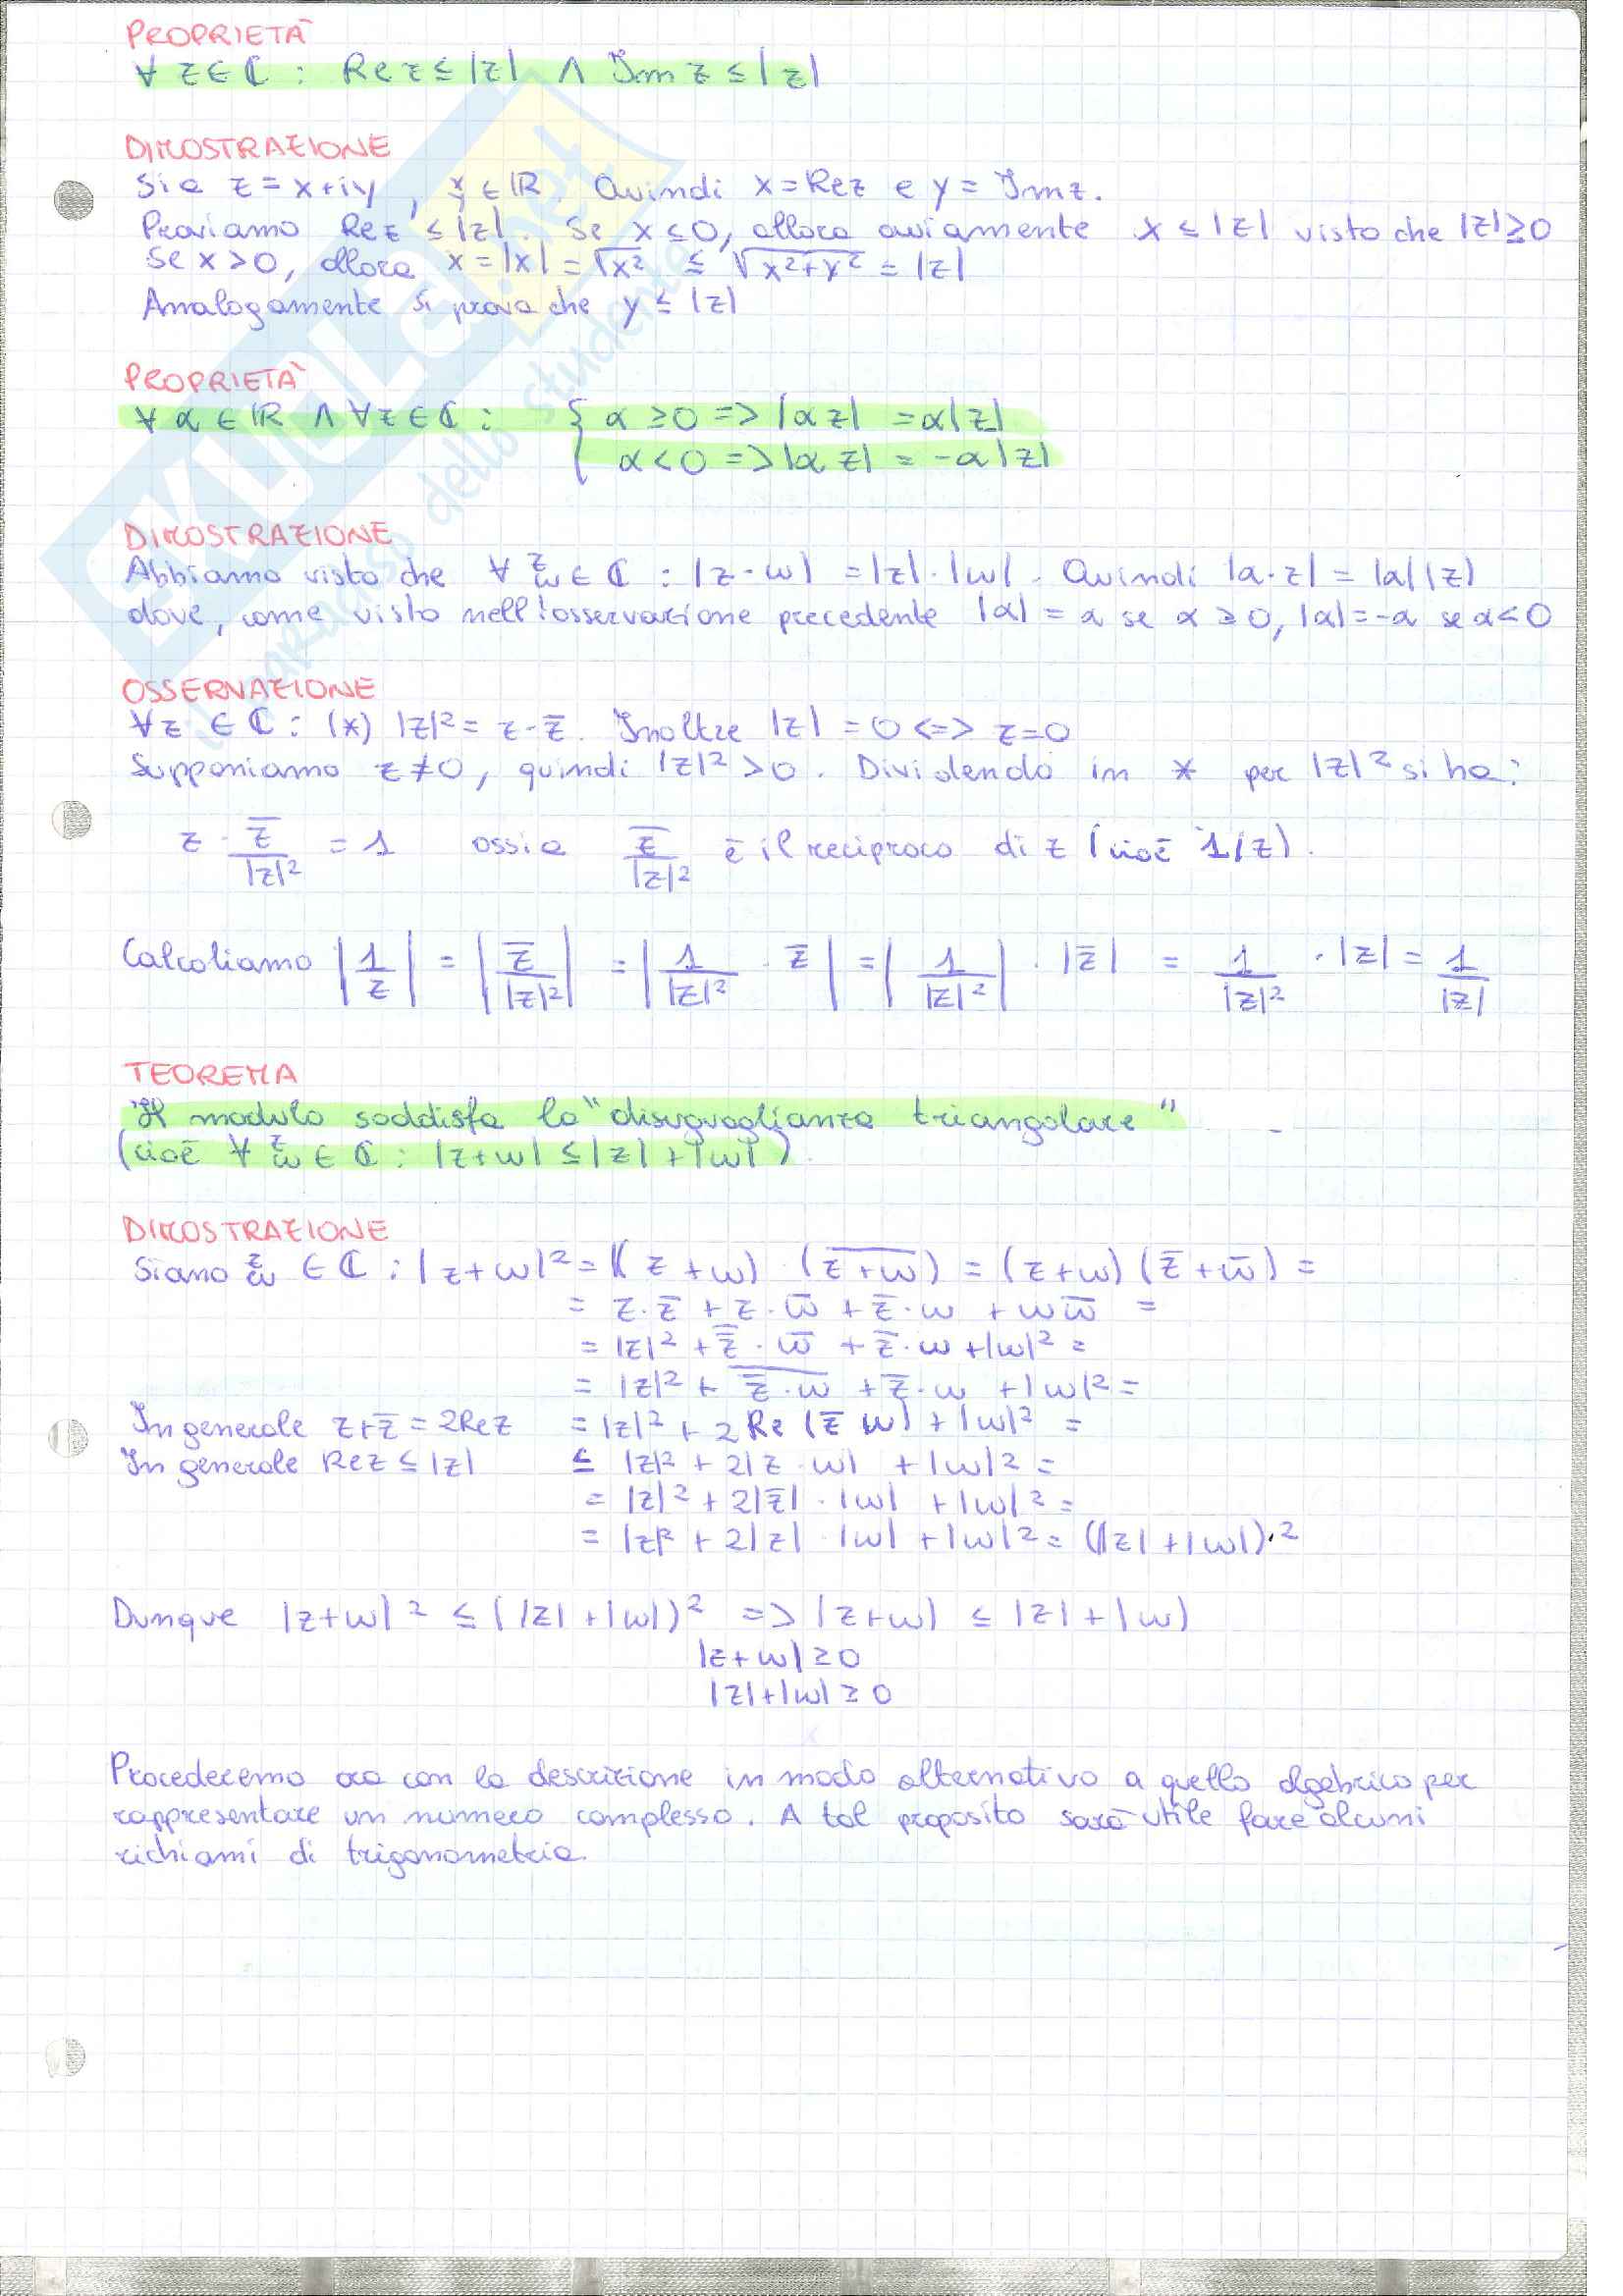 PROPRIETÀ
∀ z∈ℂ : Re z ≤ |z| ∧ Im z ≤ |z|
DIMOSTRAZIONE
Sia z = x+iy, x, y ∈ ℝ. Quindi x = Re z e y = Im z.
Proviamo Re z ≤ |z|. Se x ≤ 0, allora ovviamente x ≤ |z| visto che |z| ≥ 0
Se x > 0, allora x = |x| = √x² ≤ √x²+y² = |z|
Analogamente si prova che y ≤ |z|
PROPRIETÀ
∀ α ∈ ℝ ∧ ∀ z ∈ ℂ : { α ≥ 0 => |αz| = α|z|
α < 0 => |αz| = -α|z|
DIMOSTRAZIONE
Abbiamo visto che ∀ z, w ∈ ℂ : |z·w| = |z|·|w|. Quindi |α·z| = |α||z|
dove, come visto nell'osservazione precedente |α| = α se α ≥ 0, |α| = -α se α < 0
OSSERVAZIONE
∀ z ∈ ℂ : (*) |z|² = z·z̄. Inoltre |z| = 0 <=> z = 0
Supponiamo z ≠ 0, quindi |z|² > 0. Dividendo in * per |z|² si ha:
z · z̄/|z|² = 1 ossia z̄/|z|² è il reciproco di z (cioè 1/z).
Calcoliamo |1/z| = |z̄/|z|²| = |1/|z|² · z̄| = |1/|z|²| · |z̄| = 1/|z|² · |z| = 1/|z|
TEOREMA
"Il modulo soddisfa la "disuguaglianza triangolare"
(cioè ∀ z, w ∈ ℂ : |z+w| ≤ |z|+|w|)
DIMOSTRAZIONE
Siano z, w ∈ ℂ : |z+w|² = (z+w)·(z̅+̅w̅) = (z+w)(z̄+w̄) =
= z·z̄ + z·w̄ + z̄·w + ww̄ =
= |z|² + z̿·w̄ + z̄·w + |w|² =
= |z|² + z̿·̅w̅ + z̄·w + |w|² =
In generale z+z̄ = 2Re z = |z|² + 2Re(z̄ w) + |w|² =
In generale Re z ≤ |z| ≤ |z|² + 2|z·w| + |w|² =
= |z|² + 2|z̄|·|w| + |w|² =
= |z|² + 2|z|·|w| + |w|² = (|z|+|w|)²
Dunque |z+w|² ≤ (|z|+|w|)² => |z+w| ≤ |z|+|w|
|z+w| ≥ 0
|z|+|w| ≥ 0
Procederemo ora con la descrizione in modo alternativo a quello algebrico per
rappresentare un numero complesso. A tal proposito sarà utile fare alcuni
richiami di trigonometria.